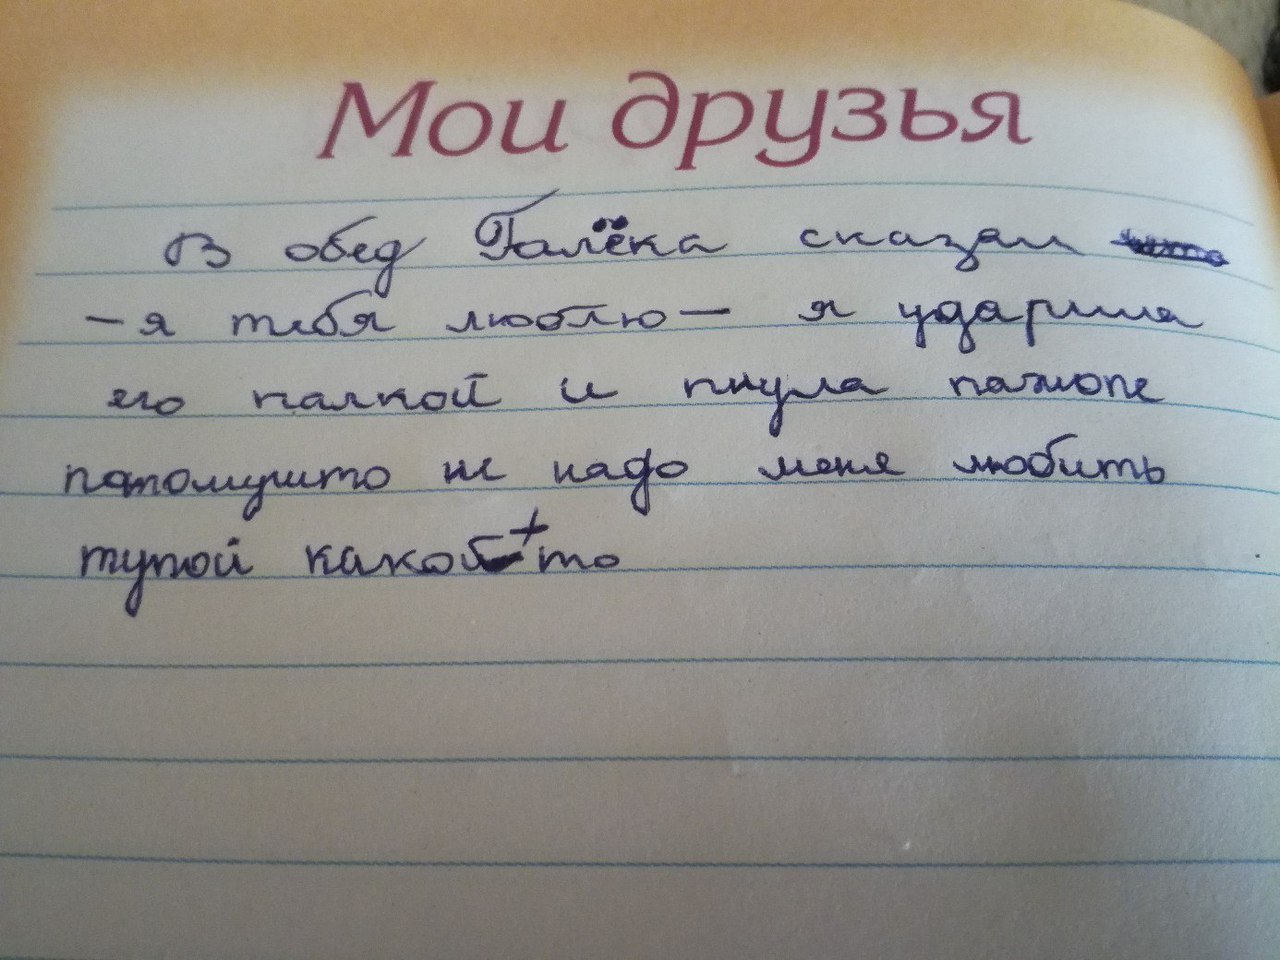 Мои друзья
В обед Галёка сказал
- я тебя люблю - я ударила
его палкой и пнула пажопе
патомушто не надо меня любить
тупой какой то